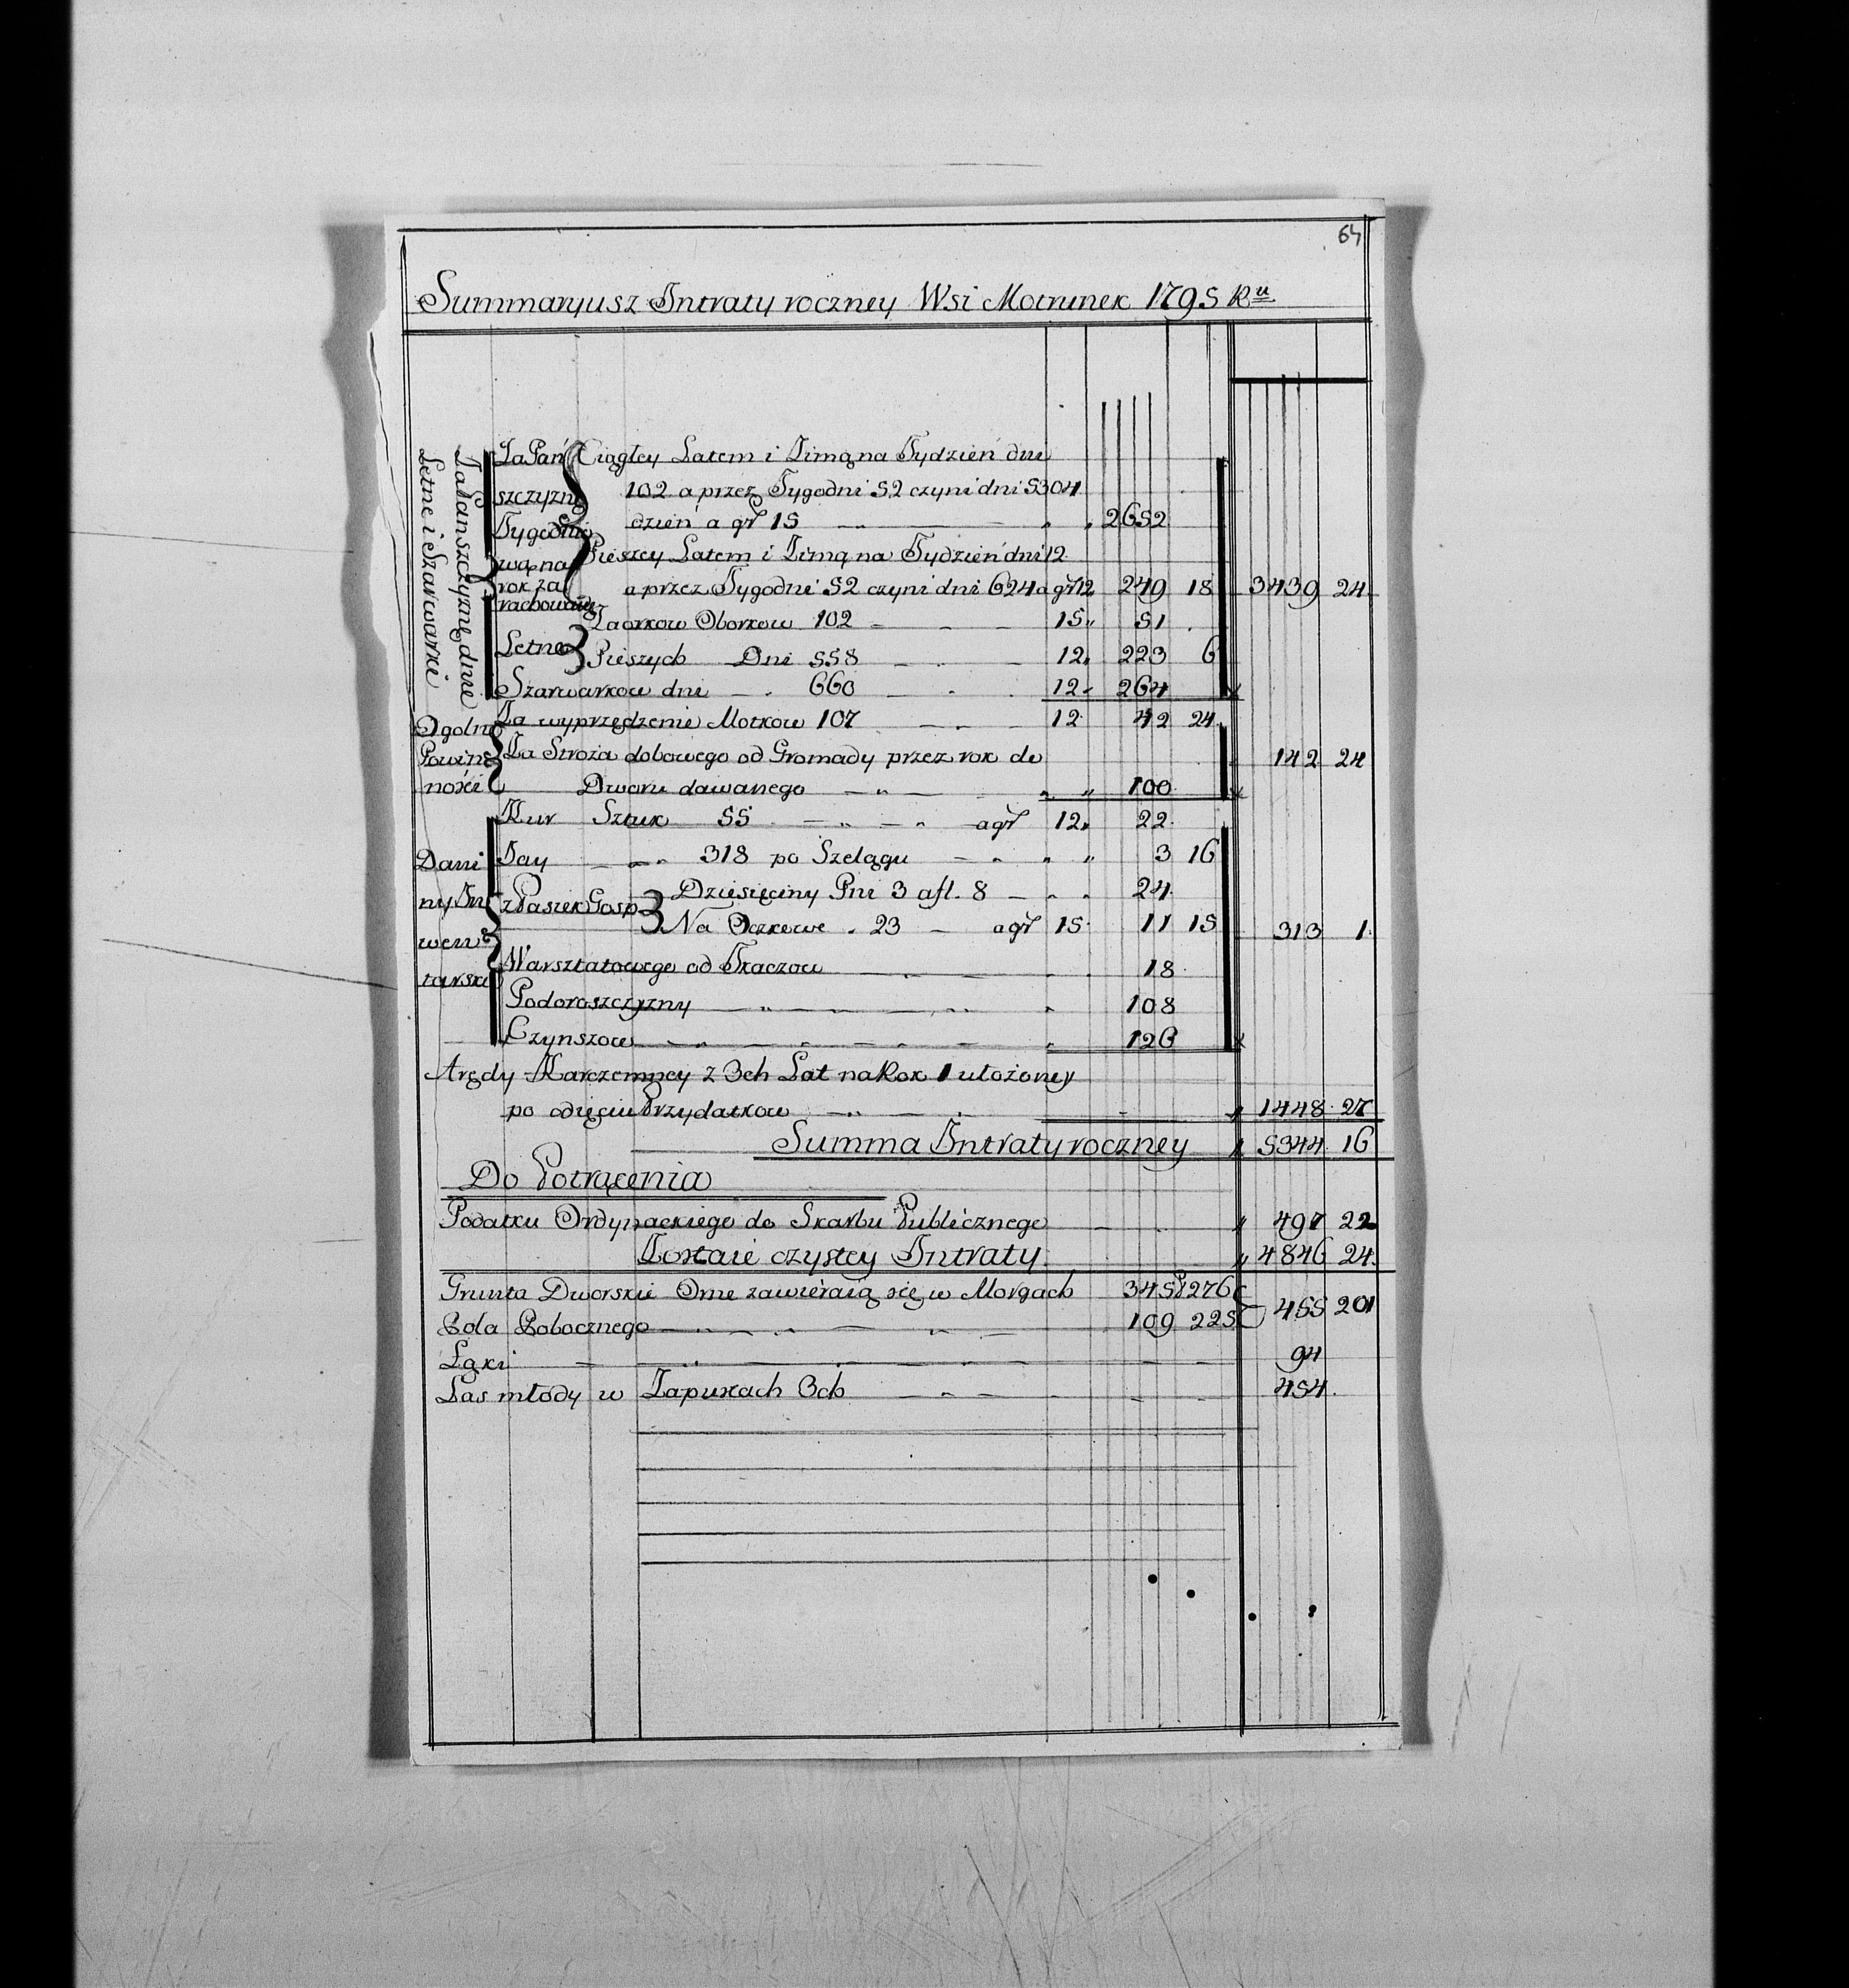 64
Summaryusz Intraty roczney Wsi Motrunek 1795 Ru
Za Pańszczyznę dnie Letne i Szarwarki
Za Pańszczyznę Tygodniową na rok zarachowaną
Ciągłey Latem i Zimą na Tydzień dni
102 a przez Tygodni 52 czyni dni 5304
dzień a gr 15 2652
Pieszey Latem i Zimą na Tydzień dni 12
a przez Tygodni 52 czyni dni 624 a gr 12 249 18 3439 24
Letne
Zaorkow Oborkow 102 15 51
Pieszych Dni 558 12 223 6
Szarwarkow dni 660 12 264
Ogolne Powinności
Za wyprzędzenie Motkow 107 12 42 24
Za Stroża dobowego od Gromady przez rok do 142 24
Dworu dawanego 100
Daniny Inwentarskie
Kur Sztuk 55 a gr 12 22
Jay 318 po Szelągu 3 16
z Pasiek Gosp
Dziesięciny Pni 3 a fl. 8 24
Na Oczkowe 23 a gr 15 11 15 313 1
Warsztatowego od Tkaczow 18
Podoroszczyzny 108
Czynszow 126
Arędy Karczemney z 3ch Lat na Rok 1 ułożoney
po odięciu Przydatkow 1448 27
Summa Intraty roczney 5344 16
Do Potrącenia
Podatku Ordynackiego do Skarbu Publicznego 497 22
Zostaie czystey Intraty 4846 24
Grunta Dworskie Orne zawieraią się w Morgach 345 276
Pola Pobocznego 109 225 455 201
Łąki 94
Las młody w Zapustach 3ch 454